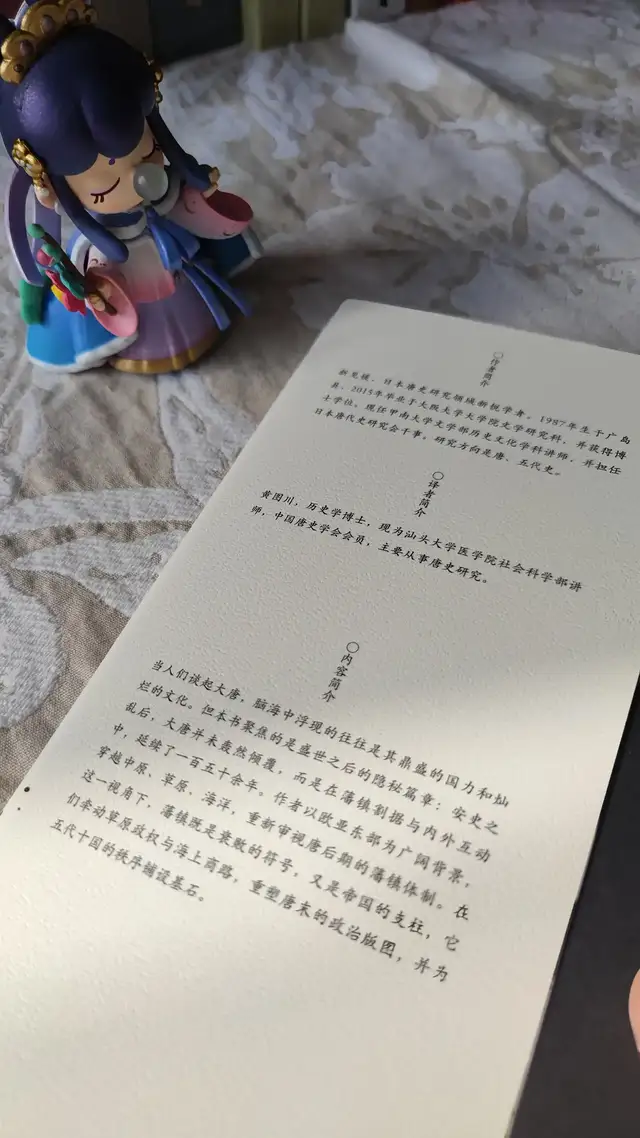 ○作者简介
新见镇，日本唐史研究领域新锐学者。1987年生于广岛
县，2015年毕业于大阪大学大学院文学研究科，并获得博
士学位，现任甲南大学文学部历史文化学科讲师，并担任
日本唐代史研究会干事。研究方向是唐、五代史。
○译者简介
黄图川，历史学博士，现为汕头大学医学院社会科学部讲
师，中国唐史学会会员，主要从事唐史研究。
○内容简介
当人们谈起大唐，脑海中浮现的往往是其鼎盛的国力和灿
烂的文化。但本书聚焦的是盛世之后的隐秘篇章：安史之
乱后，大唐并未轰然倾覆，而是在藩镇割据与内外互动
中，延续了一百五十余年。作者以欧亚东部为广阔背景，
穿越中原、草原、海洋，重新审视唐后期的藩镇体制。在
这一视角下，藩镇既是衰败的符号，又是帝国的支柱，它
们牵动草原政权与海上商路，重塑唐末的政治版图，并为
五代十国的秩序铺设基石。